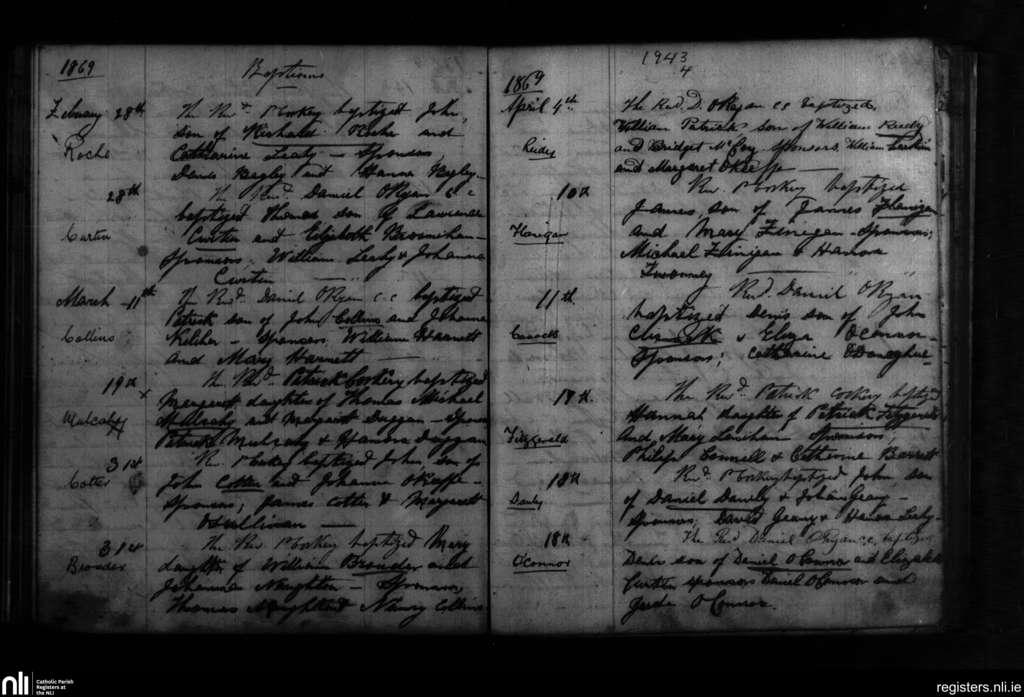 1869
Baptisms
February 28th
The Revd. P Cockey baptized John,
Roche
son of Richard Roche and
Catharine Leahy - Sponsors,
Denis Begley and Hanna Begley-
28th
The Revd. Daniel O'Ryan c c
baptized Thomas son of Lawrence
Curtin
Curtin and Elizabeth
Sponsors, William Leahy & Johanna
Curtin
March - 11th
The Revd. Daniel O'Ryan c.c baptized
Patrick son of John Collins and Johanna
Collins
Kelcher - Sponsors, William Harnett
and Mary Harnett
19th
The Revd. Patrick Cockery baptized
Margaret daughter of Thomas Michael
Mulcahy
Mulcahy and Margaret Duggan - Sponsors
Patrick Mulcahy & Hanora Duggan
31st
R. P Cockey baptized John, son of
Cotter
John Cotter and Johanna O'Keeffe -
Sponsors, James Cotter & Margaret
Sullivan
31st
The Rev P Cockey baptized Mary
Browder
daughter of William Browder and
Johanna Naughton - Sponsors,
Thomas Naughton & Nancy Collins
1943
4
1869
April 4th
The Revd. D. O'Ryan c c baptized,
William Patrick son of William Reidy
Reidy
and Bridget McCoy. Sponsors. William
and Margaret O'Keeffe
10th
Rev. P Cockey baptized
James, son of James Flanigan
Flanigan
and Mary Finegan - Sponsors;
Michael Finigan & Hanora
Twomey
11th
Revd. Daniel O'Ryan
baptized Denis son of John
& Eliza O'Connor -
Sponsors; Catharine O'Donoghue -
17th.
The Revd. Patrick Cockery baptized
Hannah daughter of Patrick Fitzgerald
Fitzgerald
and Mary Lenihan Sponsors,
Philip Connell & Catherine Barrett
18th
Revd. P Cockey baptized John son
Danly
of Daniel Danely & Johan Geary -
Sponsors, David Geary & Hanna Leahy -
18th
The Revd Daniel O'Ryan c.c. baptized
O'Connor
Denis son of Daniel O'Connor and Elizabeth
Curtin sponsors Daniel O'Connor and
Jude O'Connor.
nli
Catholic Parish
Registers at
the NLI
registers.nli.ie